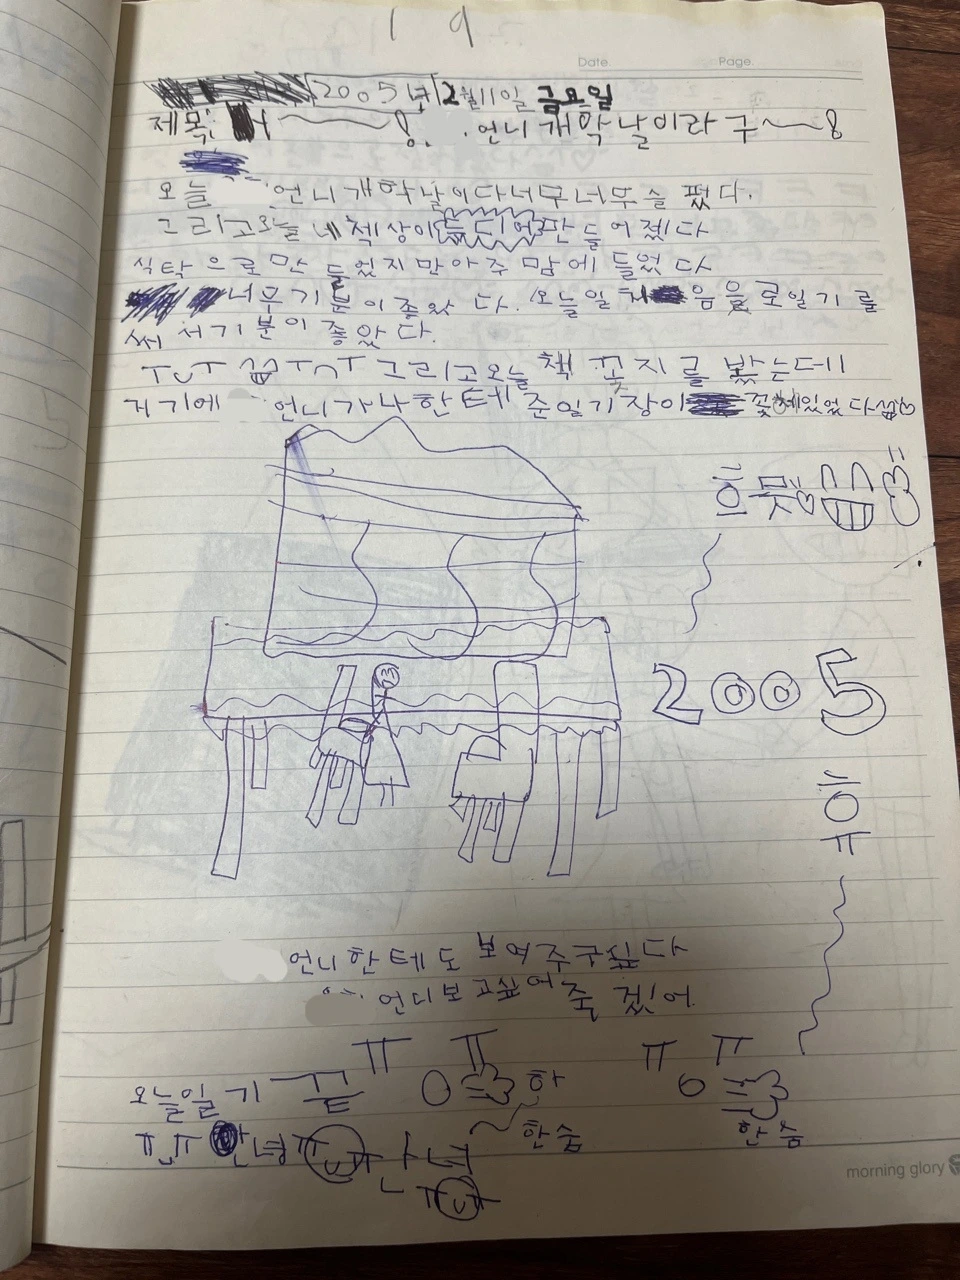 1 9
Date. Page.
2005년 2월 11일 금요일
제목: 언니 개학날이라구~~!
오늘 언니개학날이다너무너무슬펐다.
그리고오늘내첵상이드디어만들어졌다
식탁으로만들었지만아주맘에들었다
너무기분이좋았다. 오늘일기
써서기분이좋았다.
ㅜㅜ ㅠㅠ 그리고오늘책꽂지를봤는데
거기에 언니가나한테준일기장이꽂혜있었다
흐뭇
2005
흐유
언니한테도보여주구싶다
언니보고싶어죽겠어
ㅠ ㅠ ㅠ ㅠ
오늘일기 끝 하
한숨 한숨
안녕
안녕
morning glory